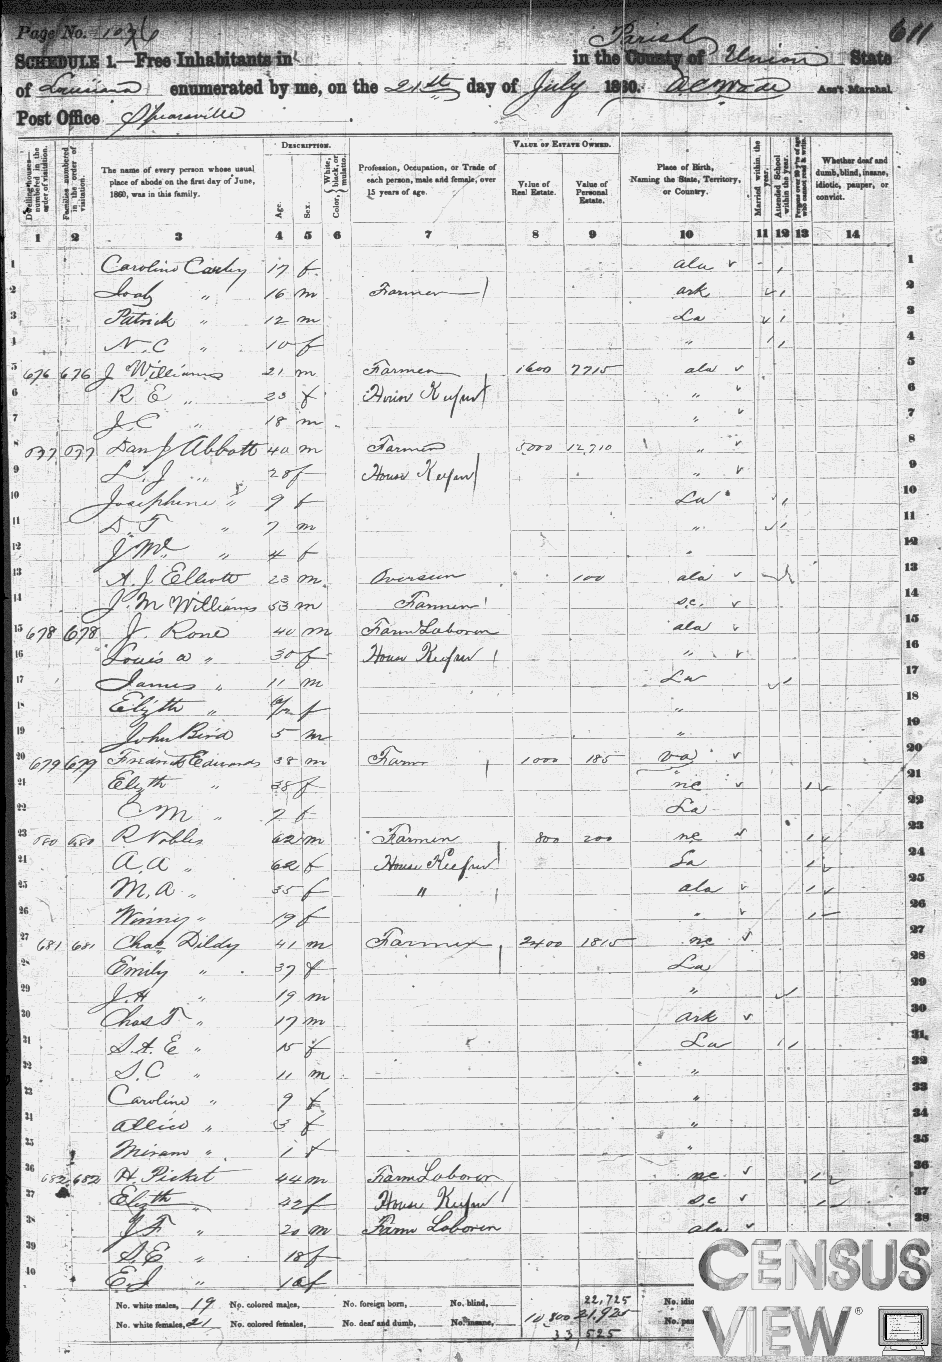 Page No. 107 611
SCHEDULE 1.—Free Inhabitants in in the County of Parish Union State
of Louisiana enumerated by me, on the 21st day of July 1860. Ass't Marshal
Post Office Spearsville
DESCRIPTION. VALUE OF ESTATE OWNED.
Dwelling-houses—numbered in the order of visitation. Families numbered in the order of visitation. The name of every person whose usual place of abode on the first day of June, 1860, was in this family. Age. Sex. Color, White, black, or mulatto. Profession, Occupation, or Trade of each person, male and female, over 15 years of age. Value of Real Estate. Value of Personal Estate. Place of Birth, Naming the State, Territory, or Country. Married within the year. Attended School within the year. Persons over 20 y'rs of age who cannot read & write. Whether deaf and dumb, blind, insane, idiotic, pauper, or convict.
1 2 3 4 5 6 7 8 9 10 11 12 13 14
1 Caroline 17 f ala 1
2 " 16 m Farmer ark 2
3 Patrick " 12 m La 3
4 N. C " 10 f " 4
5 676 676 J Williams 21 m Farmer 1600 7715 ala 5
6 R E " 23 f House Keeper " 6
7 J. C " 18 m " 7
8 677 677 Dan J Abbott 40 m Farmer 5000 12,710 " 8
9 L. J " 28 f House Keeper " 9
10 Josephine " 9 f La 10
11 D. T " 7 m " 11
12 J Mc " 4 f " 12
13 A. J Elliott 23 m Overseer 100 ala 13
14 J. M Williams 53 m Farmer s.c. 14
15 678 678 J. Rone 40 m Farm Laborer ala 15
16 Louis a " 30 f House Keeper " 16
17 James " 11 m La 17
18 Elizth " f " 18
19 John Bird 5 m " 19
20 679 679 Fredrick Edwards 38 m Farmr 1000 185 va 20
21 Elizth " 38 f nc 1 21
22 C M " 7 f La 22
23 680 680 R Nobles 62 m Farmer 800 200 nc 1 23
24 A. A " 62 f House Keeper La 1 24
25 M. A " 35 f " ala 1 25
26 Winny " 19 f " 1 26
27 681 681 Chas Dildy 41 m Farmer 2400 1815 nc 27
28 Emily " 37 f La 28
29 J. H " 19 m " 29
30 Chas T " 17 m ark 30
31 S. A. E " 15 f La 1 31
32 S. C " 11 m " 32
33 Caroline " 9 f " 33
34 " 3 f " 34
35 Miriam " 1 f " 35
36 682 682 H. Picket 44 m Farm Laborer nc 1 36
37 Elizth " 42 f House Keeper s.c 1 37
38 J F " 20 m Farm Laborer ala 38
39 S. E " 18 f
40 E. J " 16 f
No. white males, 19 No. colored males, No. foreign born, No. blind, 22,725 No. idio
No. white females, 21 No. colored females, No. deaf and dumb, No. insane, 10,800 21,925 No. pau
33 525
CENSUS
VIEW®